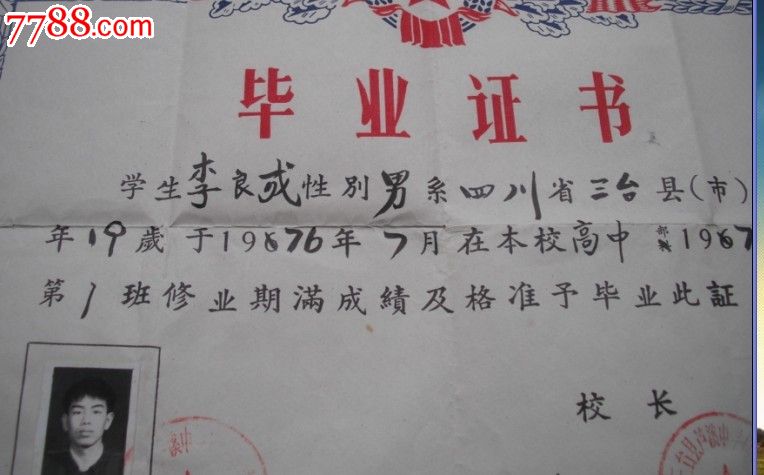 7788.com
毕业证书
学生李良或性別男系四川省三台县(市)
年19歲于19676年7月在本校高中部1967
第1班修业期滿成績及格准予毕业此証
校长